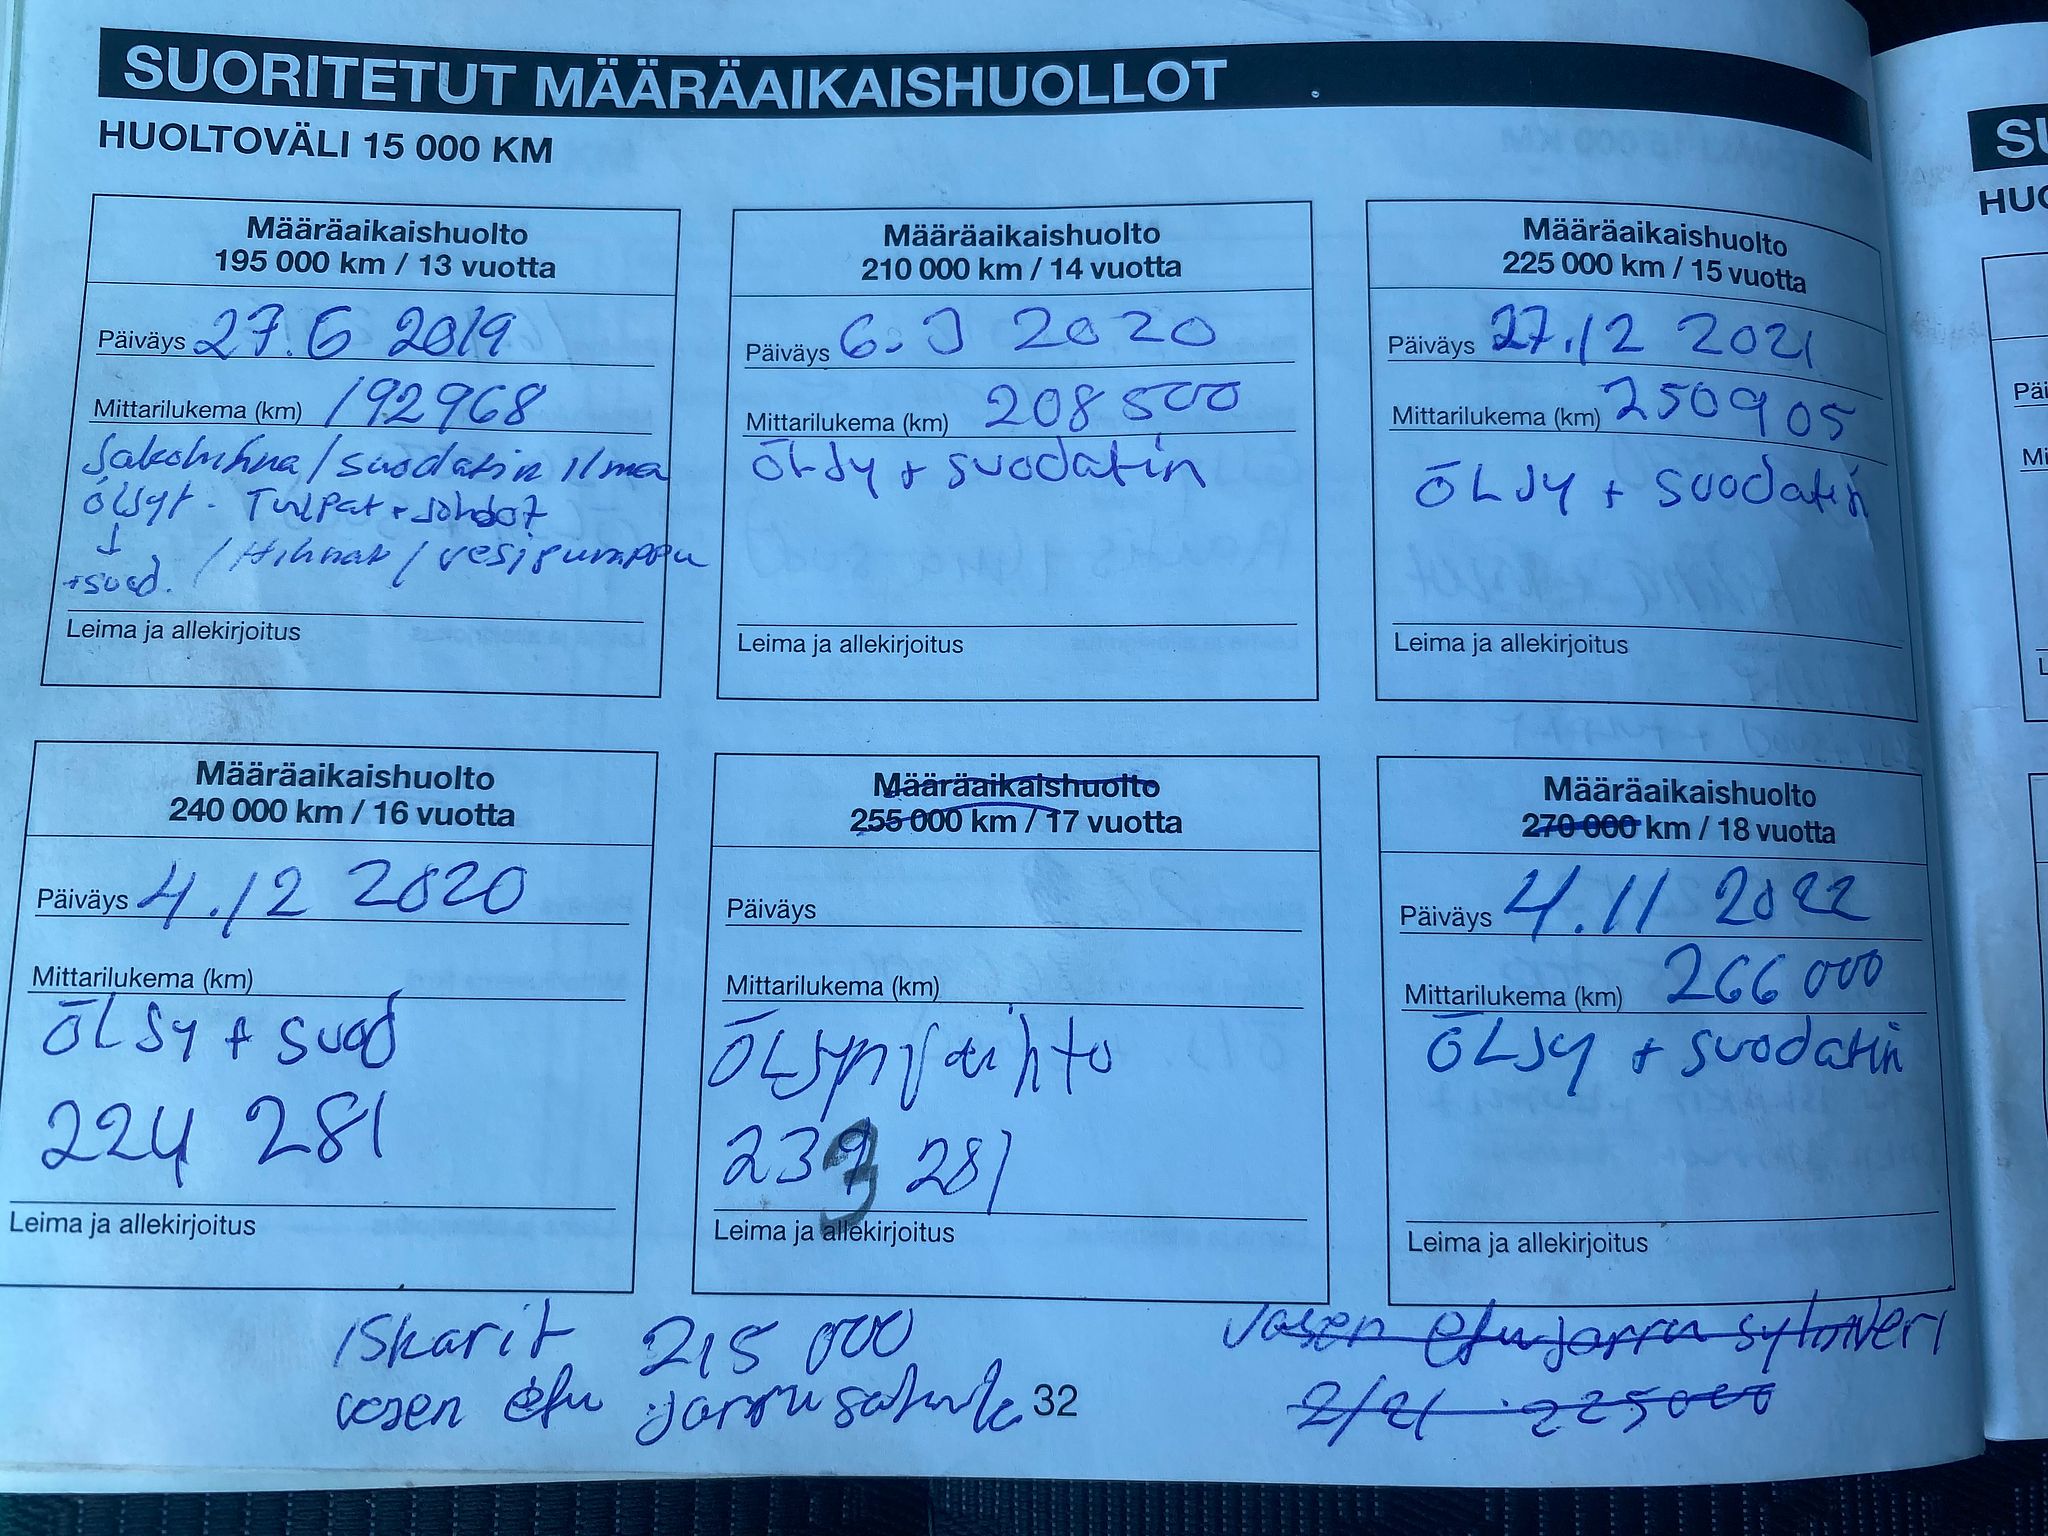 SUORITETUT MÄÄRÄAIKAISHUOLLOT
HUOLTOVÄLI 15 000 KM
Määräaikaishuolto
195 000 km / 13 vuotta
Päiväys 27.6 2019
Mittarilukema (km) 192968
Jakohihna / suodatin ilma
öljyt - Tulpat + Johdot
↓ / Hihnat / vesipumppu
+suod.
Leima ja allekirjoitus
Määräaikaishuolto
210 000 km / 14 vuotta
Päiväys 6. 2020
Mittarilukema (km) 208 500
ÖLJy + suodatin
Leima ja allekirjoitus
Määräaikaishuolto
225 000 km / 15 vuotta
Päiväys 27.12 2021
Mittarilukema (km) 250905
ÖLJy + suodatin
Leima ja allekirjoitus
Määräaikaishuolto
240 000 km / 16 vuotta
Päiväys 4.12 2020
Mittarilukema (km)
ÖLJy + suod
224 281
Leima ja allekirjoitus
Määräaikaishuolto
255 000 km / 17 vuotta
Päiväys
Mittarilukema (km)
ÖLJyn vaihto
281
Leima ja allekirjoitus
Määräaikaishuolto
270 000 km / 18 vuotta
Päiväys 4.11 2022
Mittarilukema (km) 266 000
ÖLJy + suodatin
Leima ja allekirjoitus
Iskarit 215 000
vasen etu jarrusatula
Vasen etujarru sylinteri
2/21 225000
32
SU
HUO
Pä
Mi
L